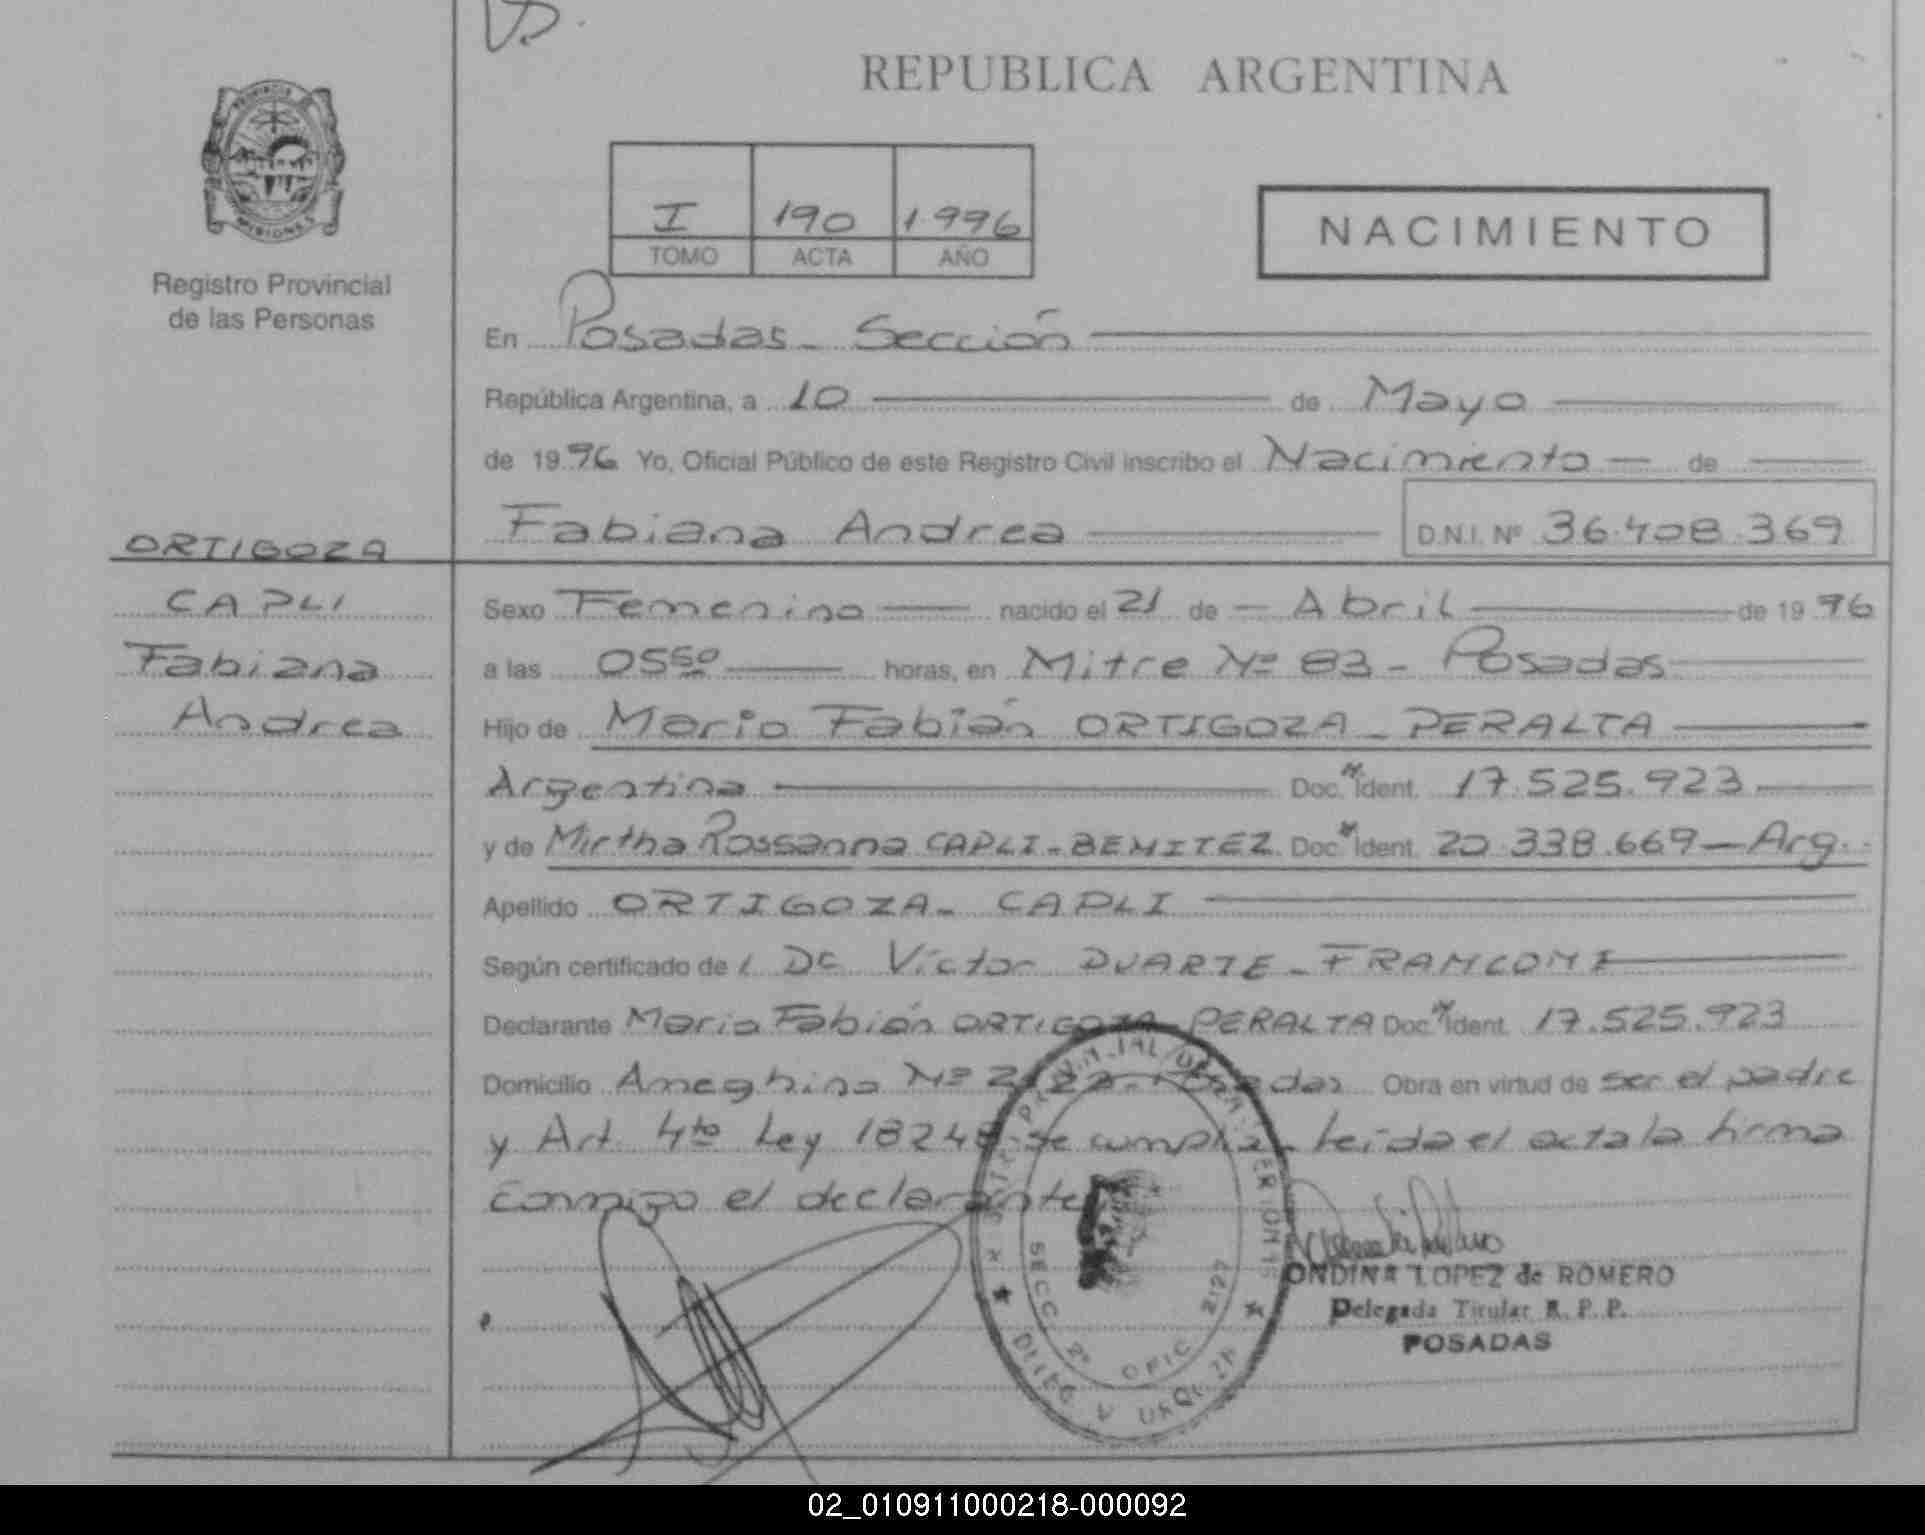 REPUBLICA ARGENTINA
PROVINCIA
MISIONES
Registro Provincial
de las Personas
I 190 1996
TOMO ACTA AÑO
NACIMIENTO
En Posadas - Sección
República Argentina, a 10 de Mayo
de 1996 Yo, Oficial Público de este Registro Civil inscribo el Nacimiento de
Fabiana Andrea D.N.I. Nº 36.408.369
ORTIGOZA
CAPLI
Fabiana
Andrea
Sexo Femenino nacido el 21 de Abril de 1996
a las 05 50 horas, en Mitre Nº 83 - Posadas
Hijo de Mario Fabián ORTIGOZA - PERALTA
Argentina Doc. Ident. 17.525.923
y de Mirtha Rossanna CAPLI - BENITEZ Doc. Ident. 20.338.669 - Arg.
Apellido ORTIGOZA - CAPLI
Según certificado de l Dr Víctor DUARTE - FRANCONI
Declarante Mario Fabián ORTIGOZA PERALTA Doc. Ident. 17.525.923
Domicilio Ameghino Nº Posadas Obra en virtud de ser el padre
y Art. 4to Ley 18248 se cumplió - Leída el acta la firma
conmigo el declarante
SECC. 2ª OFIC 2127
DELEG. V. URQUIZA
ONDINA LOPEZ de ROMERO
Delegada Titular R. P. P.
POSADAS
02_010911000218-000092